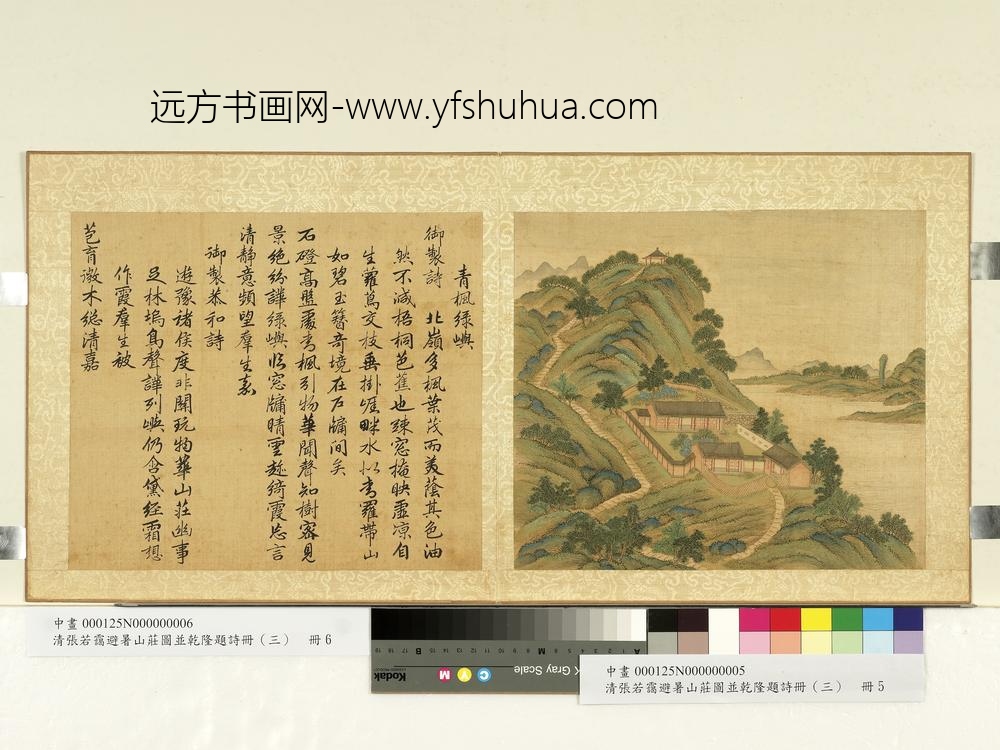 远方书画网-www.yfshuhua.com
青楓綠嶼
御製詩 北嶺多楓葉茂而美蔭其色油
然不減梧桐芭蕉也疎窓掩映虛凉自
生蘿蔦交枝垂掛崖畔水似青羅帶山
如碧玉簪奇境在戶牖間矣
石磴高盤處青楓引物華聞聲知樹密見
景絕紛譁綠嶼臨窓牖晴雲趂綺霞忘言
清靜意頻望羣生嘉
御製恭和詩
遊豫諸侯度非關玩物華山莊幽事
足林塢鳥聲譁列嶼仍含黛經霜想
作霞羣生被
苞育徽木總清嘉
中畫 000125N000000006
清張若靄避暑山莊圖並乾隆題詩冊（三） 冊6
中畫 000125N000000005
清張若靄避暑山莊圖並乾隆題詩冊（三） 冊5
Kodak
K Gray Scale
C
Y
M
A 1 2 3 4 5 6 M 8 9 10 11 12 13 14 15 B 17 18 19